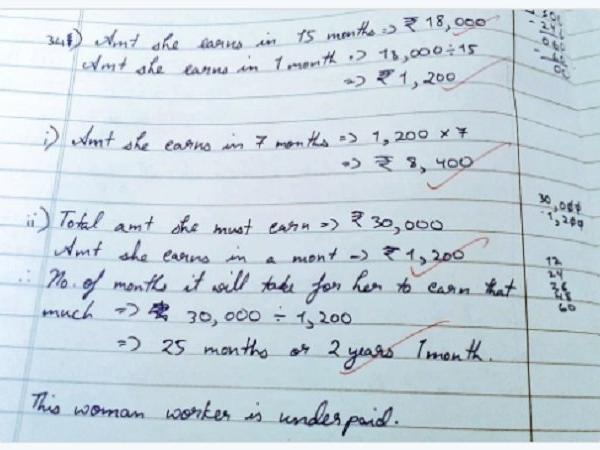 Amt she earns in 15 months => ₹ 18,000
Amt she earns in 1 month => 18,000 ÷ 15
=> ₹ 1,200
i) Amt she earns in 7 months => 1,200 × 7
=> ₹ 8,400
ii) Total amt she must earn => ₹ 30,000
Amt she earns in a mont => ₹ 1,200
∴ No. of months it will take for her to earn that
much => 30,000 ÷ 1,200
=> 25 months or 2 years 1 month.
This woman worker is underpaid.
30,000
1,200
12
24
36
48
60